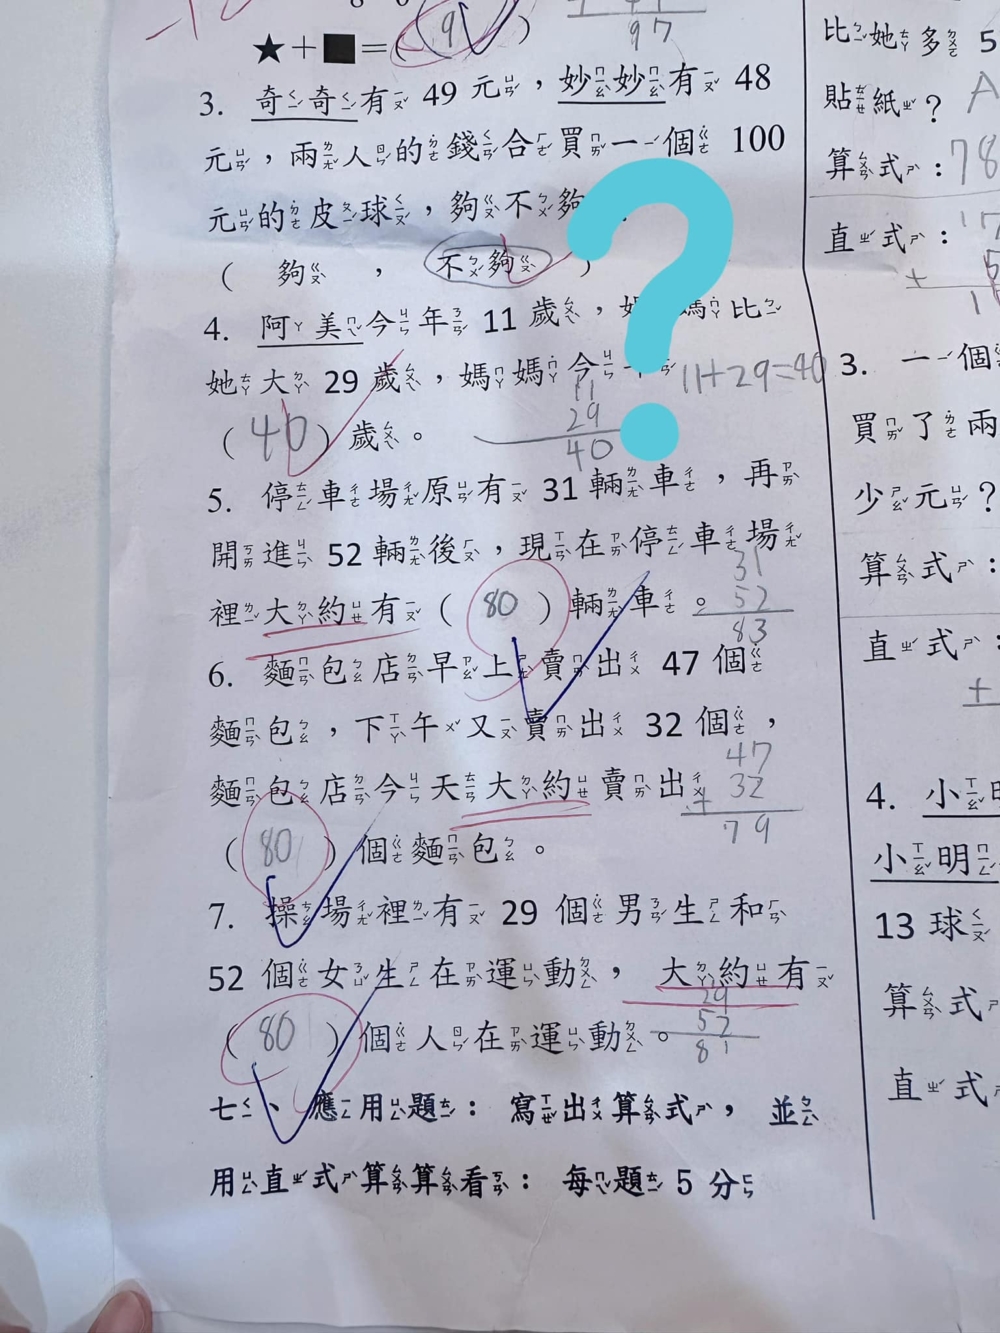 97
★+■=( 9 )
3. 奇奇有 49 元，妙妙有 48
元，兩人的錢合買一個 100
元的皮球，夠不夠
( 夠 ， 不夠 )
4. 阿美今年 11 歲，媽媽比
她大 29 歲，媽媽今
11+29=40
11
29
40
( 40 ) 歲。
5. 停車場原有 31 輛車，再
開進 52 輛後，現在停車場
裡大約有 ( 80 ) 輛車。
31
52
83
6. 麵包店早上賣出 47 個
麵包，下午又賣出 32 個，
麵包店今天大約賣出
( 80 ) 個麵包。
47
+ 32
79
7. 操場裡有 29 個男生和
52 個女生在運動，大約有
( 80 ) 個人在運動。
29
52
81
七、應用題：寫出算式，並
用直式算算看：每題 5 分
比她多 5
貼紙？
算式：78
直式：
17
+ 5
1
3. 一個
買了兩
少元？
算式：
直式：
+
4. 小明
小明
13 球
算式
直式
?